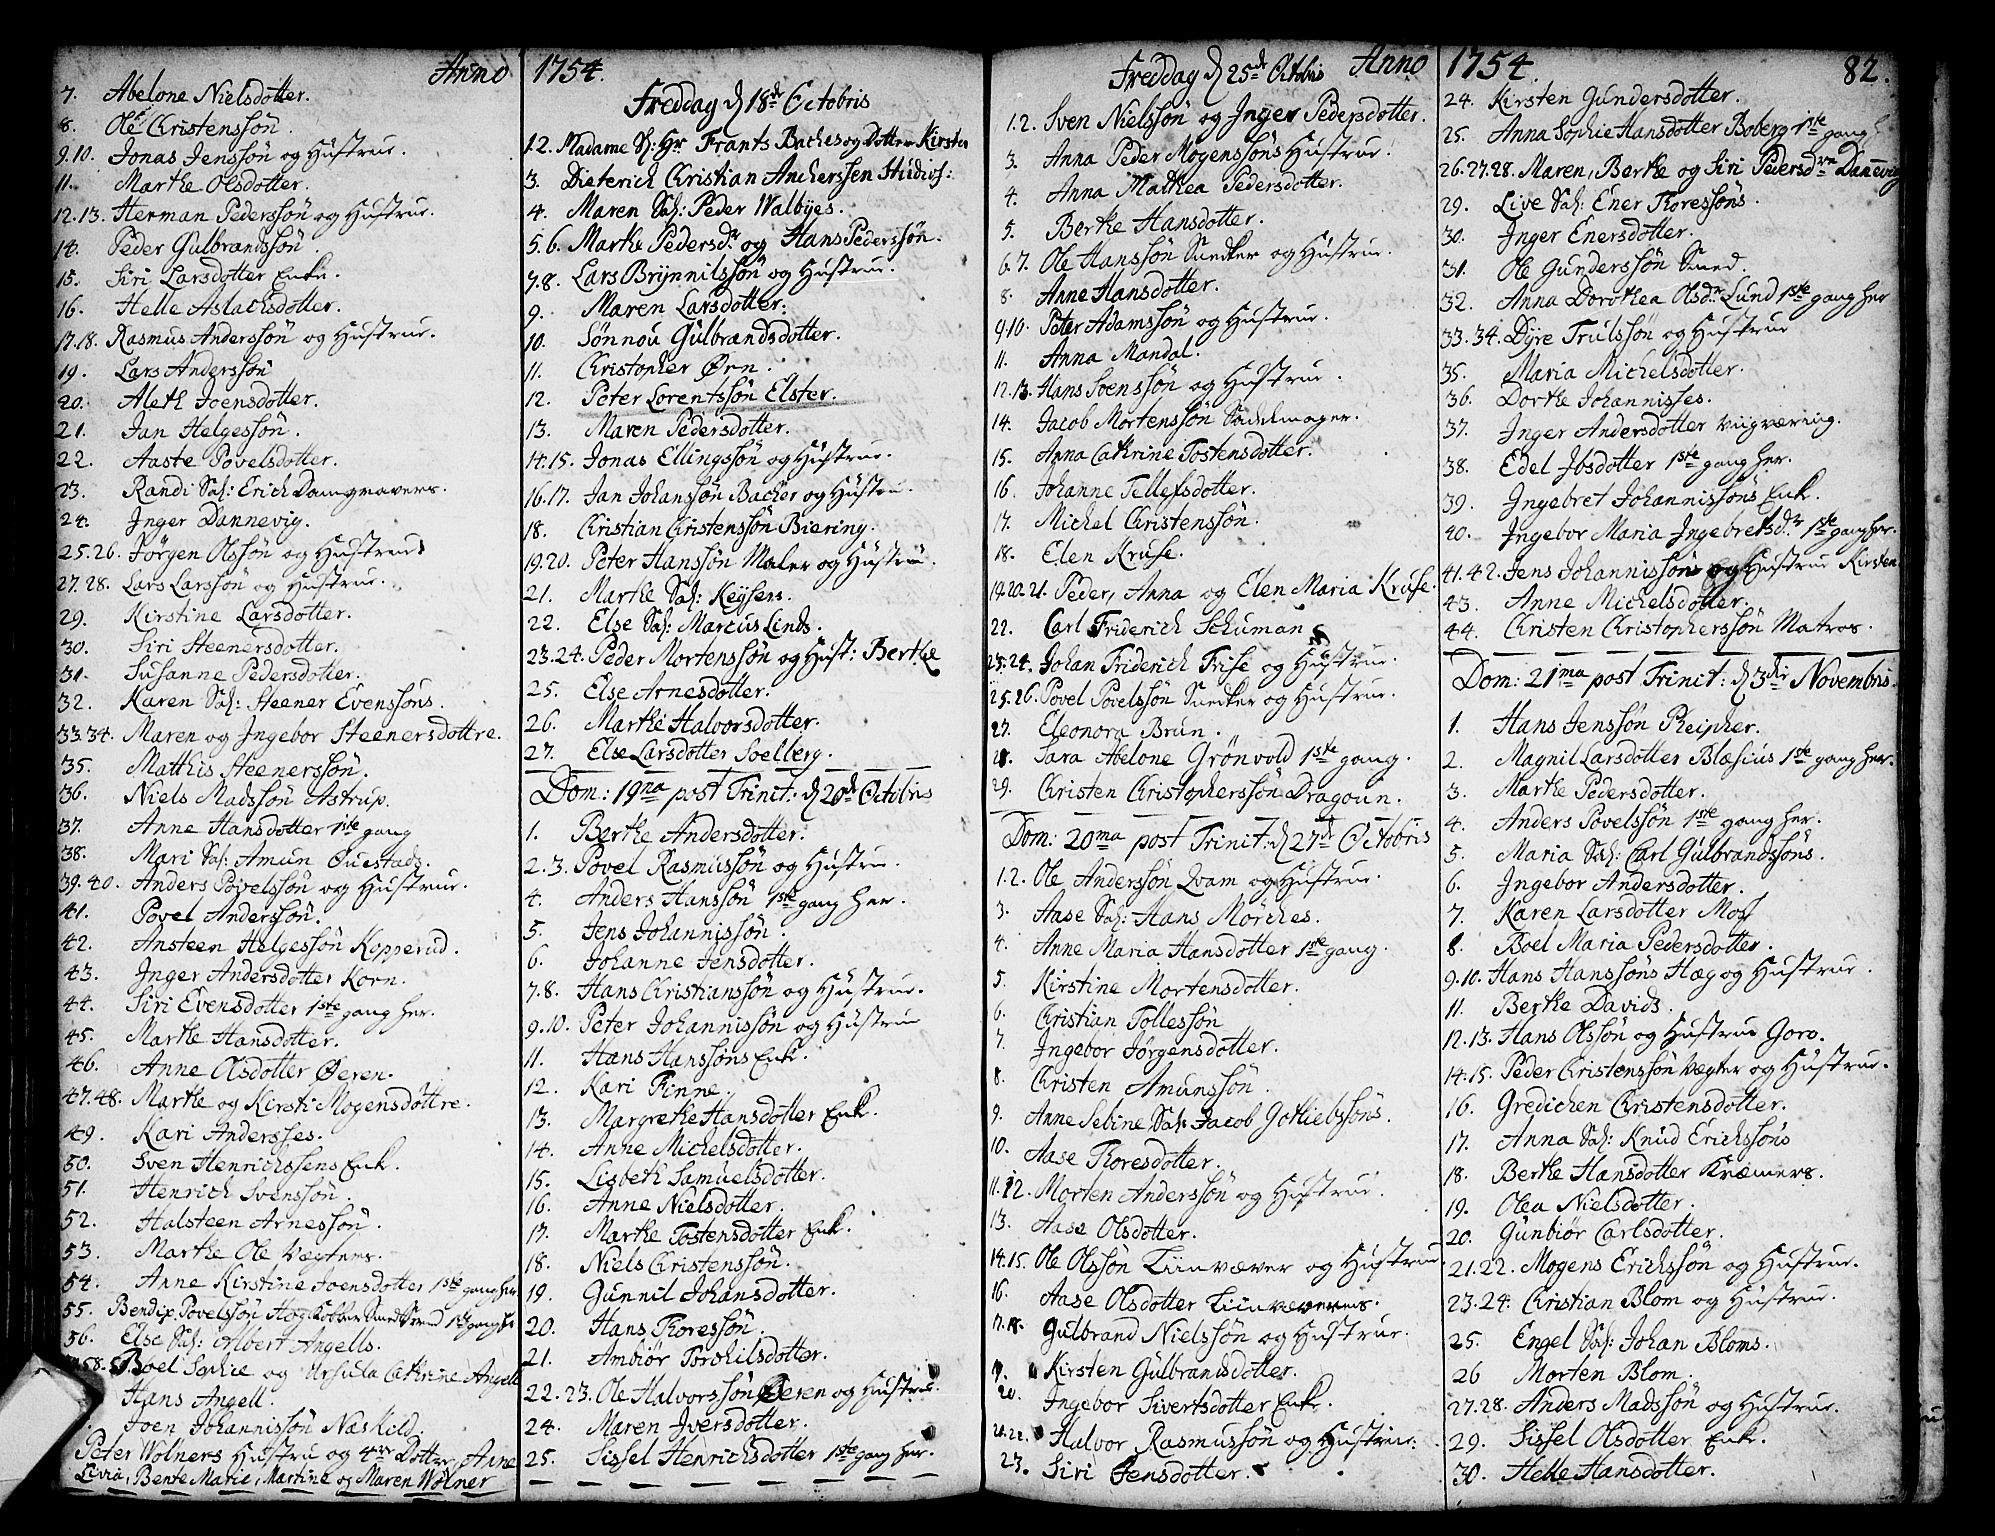 Anno
7. Abelone Nielsdotter.
8. Ole Christenssøn.
9.10. Jonas Jenssøn og Hustrue.
11. Marthe Olsdotter.
12.13. Herman Pederssøn og Hustrue.
14. Peder Gulbrandssøn.
15. Siri Larsdotter Enke.
16. Helle Aslachsdotter.
17.18. Rasmus Anderssøn og Hustrue.
19. Lars Anderssøn
20. Aleth Joensdotter.
21. Jan Helgessøn.
22. Aaste Povelsdotter.
23. Randi Sal: Erich Damgravers.
24. Inger Dannevig.
25.26. Jørgen Olssøn og Hustrue
27.28. Lars Larssøn og Hustrue.
29. Kirstine Larsdotter.
30. Siri Steenersdotter.
31. Susanne Pedersdotter.
32. Karen Sal: Steener Evenssøns.
33.34. Maren og Ingebor Steenersdottre.
35. Matthis Steenerssøn.
36. Niels Madssøn Astrup.
37. Anne Hansdotter 1ste gang
38. Mari Sal: Amun Øuestads.
39.40. Anders Povelssøn og Hustrue.
41. Povel Anderssøn.
42. Ansteen Helgessøn Kopperud.
43. Inger Andersdotter Korn.
44. Siri Evensdotter 1ste gang her.
45. Marthe Hansdotter.
46. Anne Olsdotter Øeren.
47.48. Marthe og Kirsti Mogensdottre.
49. Kari Andersses.
50. Sven Henrichssens Enk.
51. Henrich Svenssøn.
52. Halsteen Arnessøn.
53. Marthe Ole Vegters.
54. Anne Kirstine Joensdotter 1ste gang her
55. Bendix Povelssøn Høeg Kobber Smed Svend 1ste gang her
56. Else Sal: Albert Angells.
58. Boel Sophie og Ursula Cathrine Angell
Hans Angell.
Joen Johannissøn Naskild.
Peter Wölners Hustru og 4re Døttre, Anne
Livia, Bente Marie, Martine og Maren Wölner
1754.
Freddag d 18de Octobris
1.2. Madame Sl: Hr Frants Baches og Dotter Kirsten
3. Dieterich Christian Ancherssen Studios:
4. Maren Sal: Peder Walbyes.
5.6. Marthe Pedersdr og Hans Pederssøn.
7.8. Lars Brynnilssøn og Hustrue.
9. Maren Larsdotter.
10. Sønnou Gulbrandsdotter.
11. Christopher Ørn.
12. Peter Lorentssøn Elster.
13. Maren Pedersdotter.
14.15. Jonas Ellingssøn og Hustrue.
16.17. Jan Johanssøn Bacher og Hustru.
18. Christian Christenssøn Biering.
19.20. Peter Hanssøn Maler og Hustrue.
21. Marthe Sal: Keysers.
22. Else Sal: Marcus Linds.
23.24. Peder Mortenssøn og Hust: Berthe
25. Else Arnesdotter.
26. Marthe Halvorsdotter.
27. Else Larsdotter Soelberg.
Dom: 19na post Trinit: d 20de Octobris
1. Berthe Andersdotter.
2.3. Povel Rasmussøn og Hustrue.
4. Anders Hanssøn 1ste gang her.
5. Jens Johannissøn.
6. Johanne Jensdotter.
7.8. Hans Christianssøn og Hustrue.
9.10. Peter Johannissøn og Hustrue
11. Hans Hanssøns Enk.
12. Kari Finne.
13. Margrethe Hansdotter Enk.
14. Anne Michelsdotter.
15. Lisbeth Samuelsdotter.
16. Anne Nielsdotter.
17. Marthe Tostensdotter Enk.
18. Niels Christenssøn.
19. Gunnil Johansdotter.
20. Hans Thoressøn.
21. Ambiør Torchilsdotter.
22.23. Ole Halvorssøn Øeren og Hustrue.
24. Maren Iversdotter.
25. Sissel Henrichsdotter 1ste gang her.
Freddag d 25de Octobris Anno
1.2. Sven Nielssøn og Inger Pedersdotter.
3. Anna Peder Mogenssøns Hustrue.
4. Anna Mathea Pedersdotter.
5. Berthe Hansdotter.
6.7. Ole Hanssøn Snedker og Hustrue.
8. Anne Hansdotter.
9.10. Peter Adamssøn og Hustrue.
11. Anna Mandal.
12.13. Hans Svenssøn og Hustrue.
14. Jacob Mortenssøn Sadelmager.
15. Anna Cathrine Tostensdotter.
16. Johanne Tellefsdotter.
17. Michel Christenssøn.
18. Elen Kruse.
19.20.21. Peder, Anna og Elen Maria Kruse.
22. Carl Friderich Schuman
23.24. Johan Friderich Frise og Hustrue.
25.26. Povel Povelssøn Snedker og Hustrue.
27. Eleonora Brun.
28. Sara Abelone Grönvold 1ste gang.
29. Christen Christopherssøn Dragoun.
Dom: 20ma post Trinit: d 27de Octobris
1.2. Ole Anderssøn Qvam og Hustrue.
3. Aase Sal: Hans Mörches.
4. Anne Maria Hansdotter 1ste gang.
5. Kirstine Mortensdotter.
6. Christian Tollessøn
7. Ingebor Jørgensdotter.
8. Christen Amunssøn.
9. Anne Sebine Sal: Jacob Gotliebssøns.
10. Aase Thoresdotter.
11.12. Morten Anderssøn og Hustrue.
13. Aase Olsdotter.
14.15. Ole Olssøn Linvæver og Hustrue.
16. Aase Olsdotter Linvævers.
17.18. Gulbrand Nielssøn og Hustrue.
19. Kirsten Gulbrandsdotter.
20. Ingebor Sivertsdotter Enk.
21.22. Halvor Rasmussøn og Hustrue.
23. Siri Jensdotter.
1754. 82.
24. Kirsten Gundersdotter.
25. Anna Sophie Hansdotter Boberg 1ste gang
26.27.28. Maren, Berthe og Siri Pedersdre Dannevig
29. Live Sal: Ener Thoressøns.
30. Inger Enersdotter.
31. Ole Gunderssøn Smed.
32. Anna Dorothea Olsdr Lund 1ste gang her
33.34. Dyre Trulssøn og Hustrue
35. Maria Michelsdotter.
36. Dorthe Johannisses.
37. Inger Andersdotter Viigværing.
38. Edel Ibsdotter 1ste gang her.
39. Ingebret Johannissøns Enk.
40. Ingebor Maria Ingebretsdr 1ste gang her.
41.42. Jens Johannissøn og Hustrue Kirsten
43. Anne Michelsdotter.
44. Christen Christopherssøn Matros.
Dom: 21ma post Trinit: d 3die Novembris.
1. Hans Jenssøn Pheipher.
2. Magnil Larsdotter Blæsius 1ste gang her.
3. Marthe Pedersdotter.
4. Anders Povelssøn 1ste gang her.
5. Maria Sal: Carl Gulbrandssøns.
6. Ingebor Andersdotter.
7. Karen Larsdotter Moss
8. Boel Maria Pedersdotter.
9.10. Hans Hanssøns Hæg og Hustrue.
11. Berthe Davids.
12.13. Hans Olssøn og Hustrue Goro.
14.15. Peder Christenssøn Vægter og Hustrue.
16. Gredichen Christensdotter.
17. Anna Sal: Knud Erichssøns
18. Berthe Hansdotter Kræmers.
19. Olea Nielsdotter.
20. Gunbiør Carlsdotter.
21.22. Mogens Erichssøn og Hustrue.
23.24. Christian Blom og Hustrue.
25. Engel Sal: Johan Bloms.
26 Morten Blom.
27.28. Anders Madssøn og Hustrue.
29. Sissel Olsdotter Enk.
30. Helle Hansdotter.